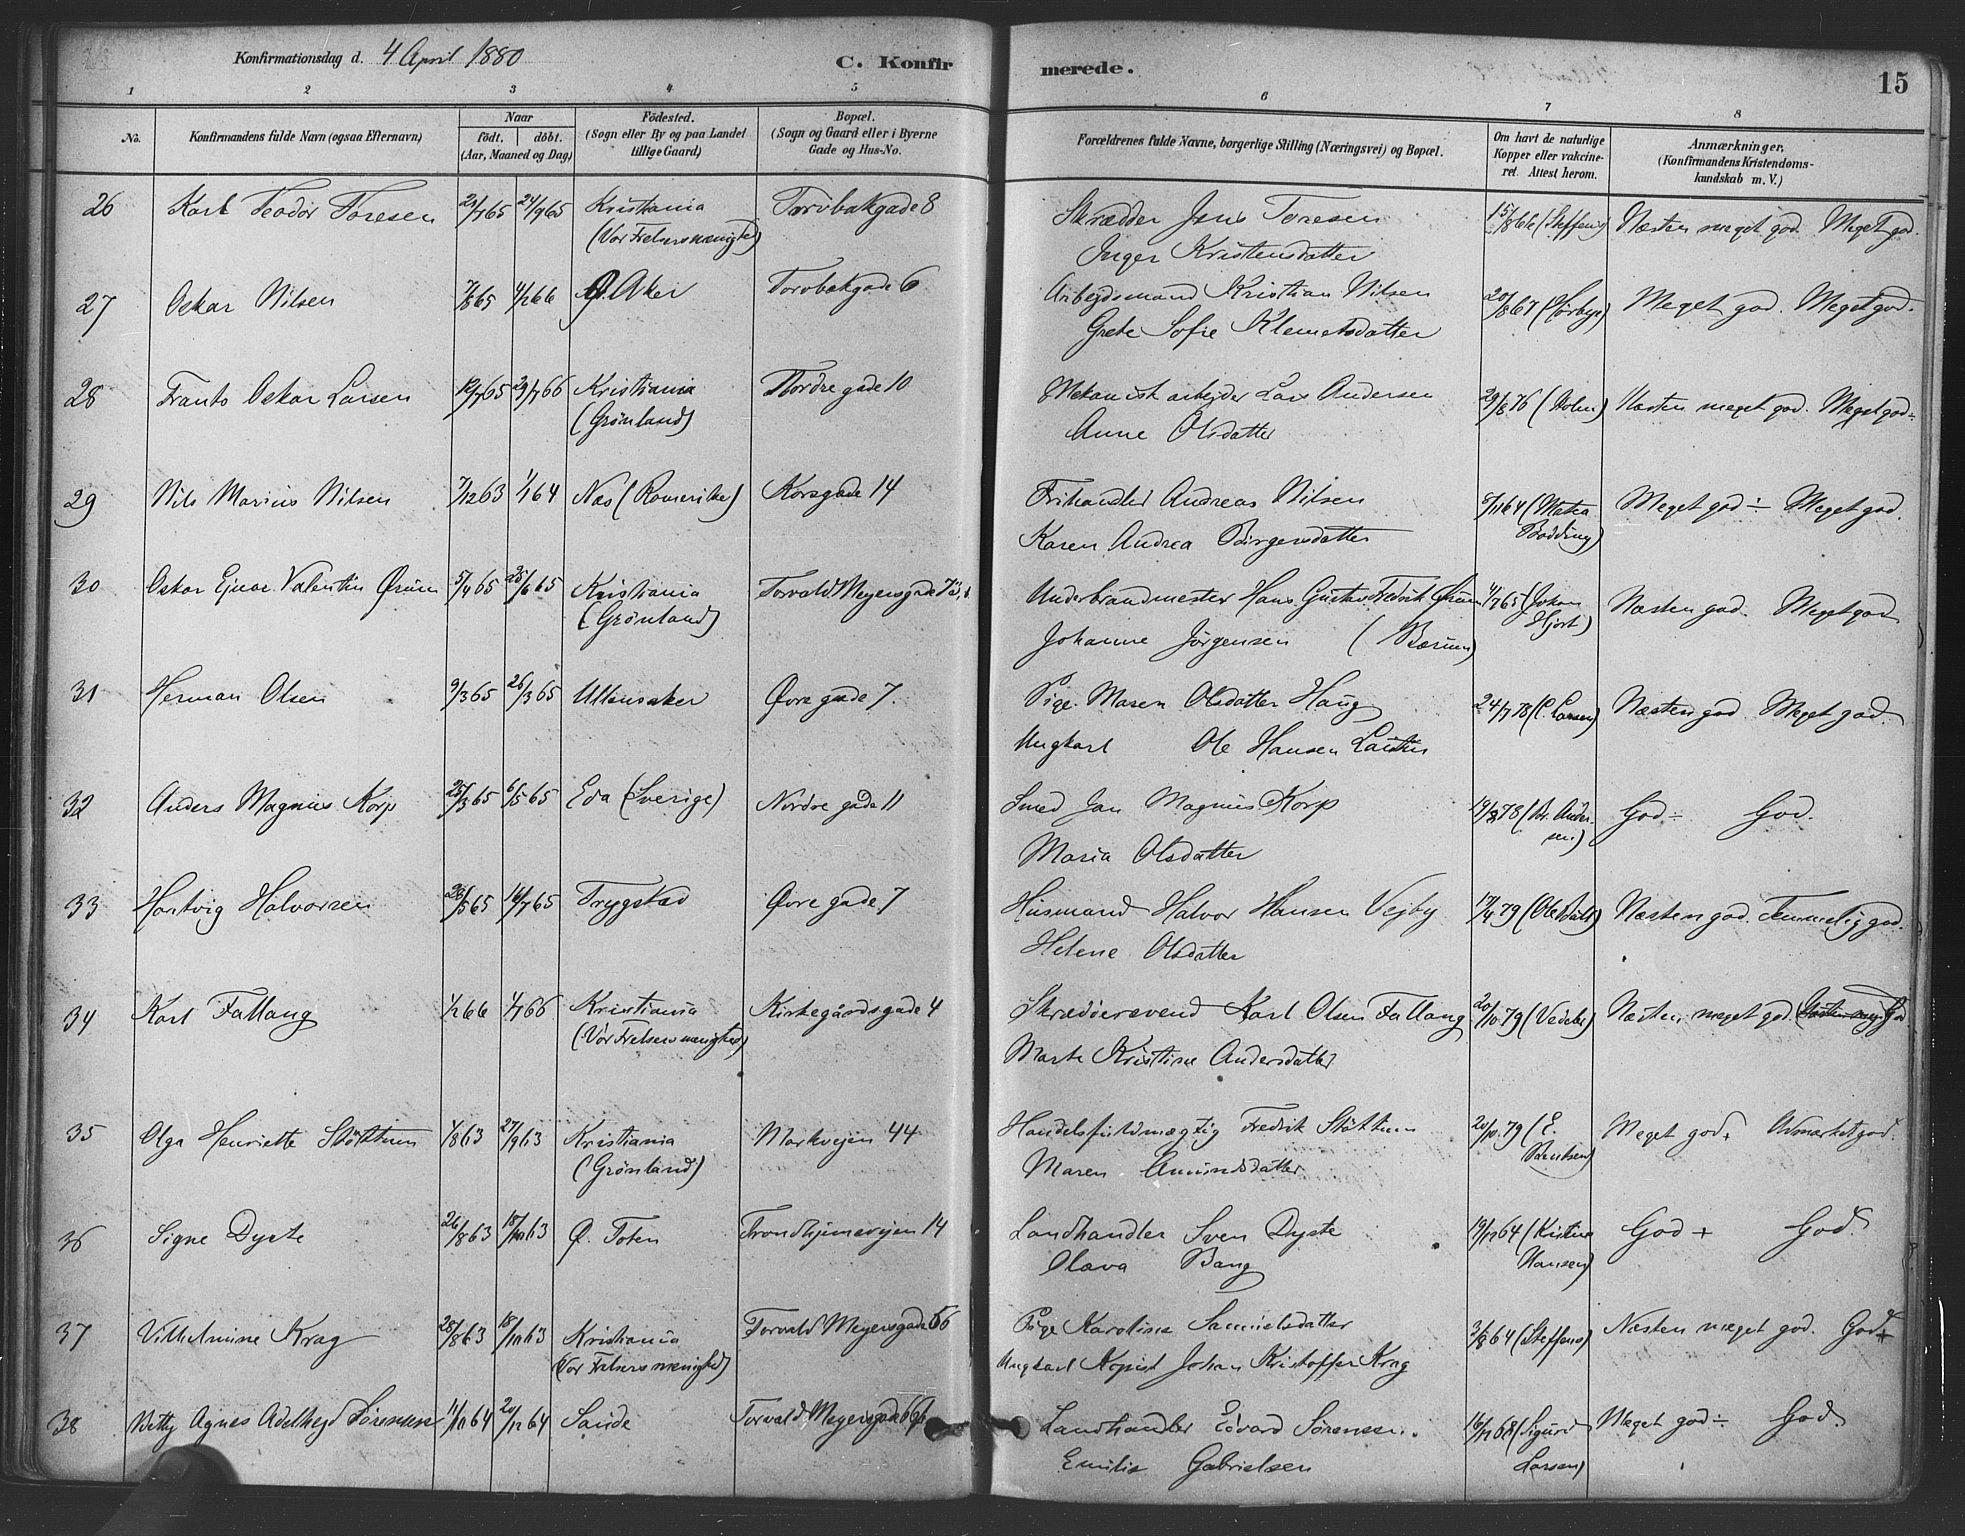 Konfirmationsdag d. 4 April 1880 C. Konfirmerede. 15
1 2 3 4 5 6 7 8
No. Konfirmandens fulde Navn (ogsaa Efternavn) Naar født. døbt. (Aar, Maaned og Dag) Fødested. (Sogn eller By og paa Landet tillige Gaard) Bopæl. (Sogn og Gaard eller i Byerne Gade og Hus-No. Forældrenes fulde Navne, borgerlige Stilling (Næringsvei) og Bopæl. Om havt de naturlige Kopper eller vakcineret. Attest herom. Anmærkninger. (Konfirmandens Kristendomskundskab m. V.)
26 Karl Teodor Toresen 65 24/9 65 Kristiania Torvbakgade 8 Skrædder Jens Toresen 15/8 66 (Steffens) Næsten meget god Meget god.
(Vor Frelsers menighed) Inger Kristensdatter
27 Oskar Nilsen 7/8 65 4/2 66 Aker Torvbakgade 6 Arbejdsmand Kristian Nilsen 20/8 67 (Sørbye) Meget god. Meget god.
Grete Sofie Klemetsdatter
28 Frants Oskar Larsen 12/7 65 29/7 66 Kristiania Nordre gade 10 Mekanisk arbejder Lars Andersen 29/8 76 (Holm) Næsten meget god. Meget god ÷
(Grønland) Anne Olsdatter
29 Nils Marius Nilsen 7/12 63 1/1 64 Næs (Romerike) Korsgade 14 Frihandler Andreas Nilsen 8/11 64 (Matea Meget god ÷ Meget god.
Karen Andrea Børgersdatter Bødding)
30 Oskar Ejnar Valentin Ørum 5/4 65 25/6 65 Kristiania Torvald Meyersgade Underbrandmester Hans Gustav Fedrik Ørum 65 (Johan Næsten god. Meget god
(Grønland) Johanne Jørgensen (Bærum) Hjort)
31 Herman Olsen 9/3 65 26/3 65 Ullensaker Øvre gade 7. Pige Maren Olsdatter Haug 24/7 78 (C. Larsen) Næsten god Meget god.
Ungkarl Ole Hansen
32 Anders Magnus Korp 25/3 65 6/5 65 Eda (Sverige) Nordre gade 11 Smed Jan Magnus Korp 78 (Kr. Andersen) God ÷ God.
Maria Olsdatter
33 Hartvig Halvorsen 65 65 Trygstad Øvre gade 7 Husmand Halvor Hansen Vejby 17/4 79 (Ole Næsten god. Temmelig god.
Helene Olsdatter
34 Karl Fallang 1/2 66 4/7 66 Kristiania Kirkegårdsgade 4 Skræddersvend Karl Olsen Fallang 20/10 79 (Vedeler) Næsten meget god God
(Vor Frelsers menighed) Marte Kristine Andersdatter
35 Olga Henriette Støttum 1/8 63 27/9 63 Kristiania Markvejen 44 Handelsfuldmægtig Fredrik Støttum 20/10 79 (E. Meget god + Udmærket god.
(Grønland) Maren Amundsdatter Bentsen)
36 Signe Dyste 26/8 63 18/10 63 Ø. Toten Trondhjemsvejen 14 Landhandler Sven Dyste 19/12 64 (Kristine God + God
Olava Bang Hansen)
37 Vilhelmine Krag 28/8 63 18/10 63 Kristiania Torvald Meyersgade 56 Pige Karoline Samuelsdatter 3/8 64 (Steffens) Næsten meget god. God +
(Vor Frelsers menighed) Ungkarl Kopist Johan Kristoffer Krag
38 Betty Agnes Adelhejd Sørensen 11/10 64 20/12 64 Sande Torvald Meyersgade Landhandler Edvard Sørensen. 16/12 68 (Sigurd Meget god ÷ God.
Emilie Gabrielsen Larsen)